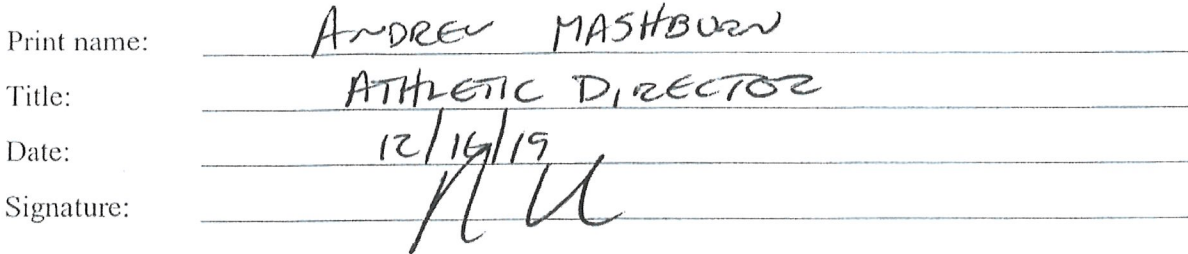 Print name: ANDREW MASHBURN
Title: ATHLETIC DIRECTOR
Date: 12/16/19
Signature: